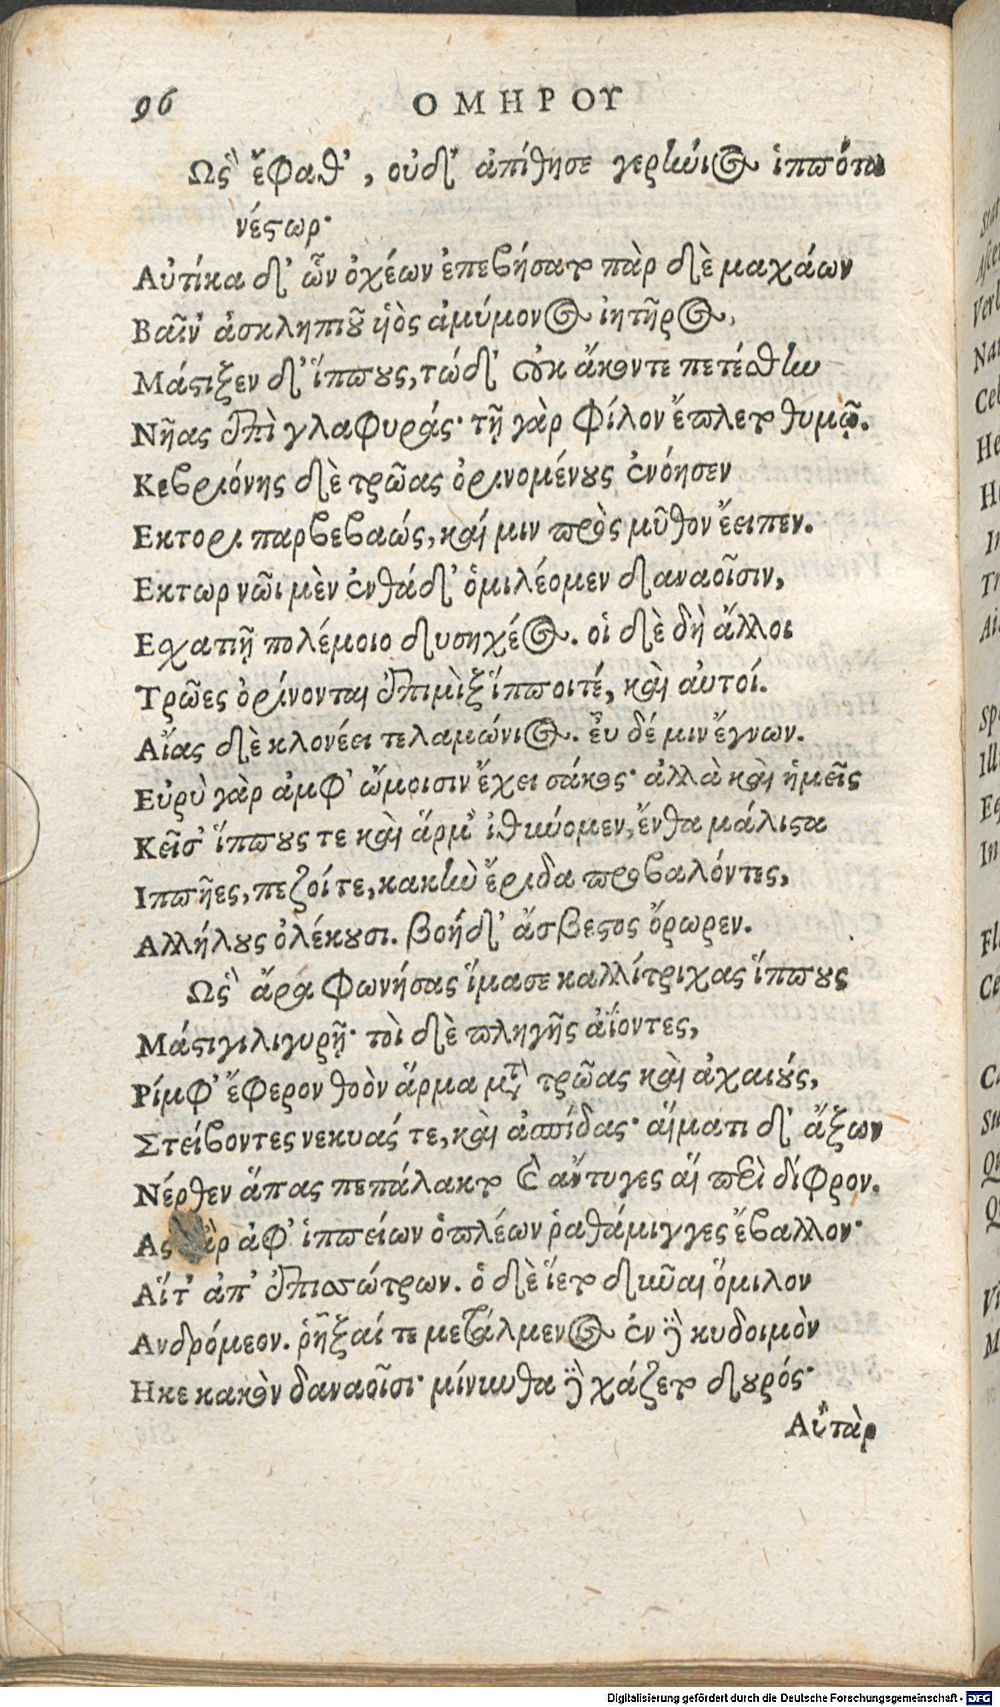 96 ΟΜΗΡΟΥ
Ως ἔφαθ', οὐδ' ἀπίθησε γερήνιος ἱππότα
νέστωρ·
Αὐτίκα δ' ὧν ὀχέων ἐπεβήσατο πὰρ δὲ μαχάων
Βαῖν' ἀσκληπιοῦ ἡὸς ἀμύμονος ἰητῆρος,
Μάστιξεν δ' ἵππους, τώδ' οὐκ ἄκοντε πετέσθην
Νῆας ἐπὶ γλαφυράς· τῇ γὰρ φίλον ἔπλετο θυμῷ.
Κεβριόνης δὲ τρῶας ὀρινομένους ἐνόησεν
Εκτορι παρβεβαώς, καί μιν πρὸς μῦθον ἔειπεν.
Εκτωρ νῶι μὲν ἐνθάδ' ὁμιλέομεν δαναοῖσιν,
Εσχατιῇ πολέμοιο δυσηχέος. οἱ δὲ δὴ ἄλλοι
Τρῶες ὀρίνονται ἐπιμὶξ ἵπποιτέ, καὶ αὐτοί.
Αἴας δὲ κλονέει τελαμώνιος. εὖ δέ μιν ἔγνων.
Εὐρὺ γὰρ ἀμφ' ὤμοισιν ἔχει σάκος· ἀλλὰ καὶ ἡμεῖς
Κεῖσ' ἵππους τε καὶ ἅρμ' ἰθύνομεν, ἔνθα μάλιστα
Ιππῆες, πεζοί τε, κακὴν ἔριδα προβαλόντες,
Αλλήλους ὀλέκουσι. βοὴ δ' ἄσβεστος ὄρωρεν.
Ως ἄρα φωνήσας ἵμασε καλλίτριχας ἵππους
Μάστιγι λιγυρῇ· τοὶ δὲ πληγῆς ἀΐοντες,
Ρίμφ' ἔφερον θοὸν ἅρμα μετὰ τρῶας καὶ ἀχαιούς,
Στείβοντες νεκυάς τε, καὶ ἀσπίδας· αἵματι δ' ἄξων
Νέρθεν ἅπας πεπάλακτο καὶ ἄντυγες αἳ περὶ δίφρον.
Ας ἀφ' ἱππείων ὁπλέων ῥαθάμιγγες ἔβαλλον·
Αἵτ' ἀπ' ἐπισσώτρων. ὁ δὲ ἵετο δῦναι ὅμιλον
Ανδρόμεον. ῥῆξαί τε μετάλμενος ἐν δὲ κυδοιμὸν
Ηκε κακὸν δαναοῖσι· μίνυνθα δὲ χάζετο δουρός·
Αὐτὰρ
Digitalisierung gefördert durch die Deutsche Forschungsgemeinschaft - DFG